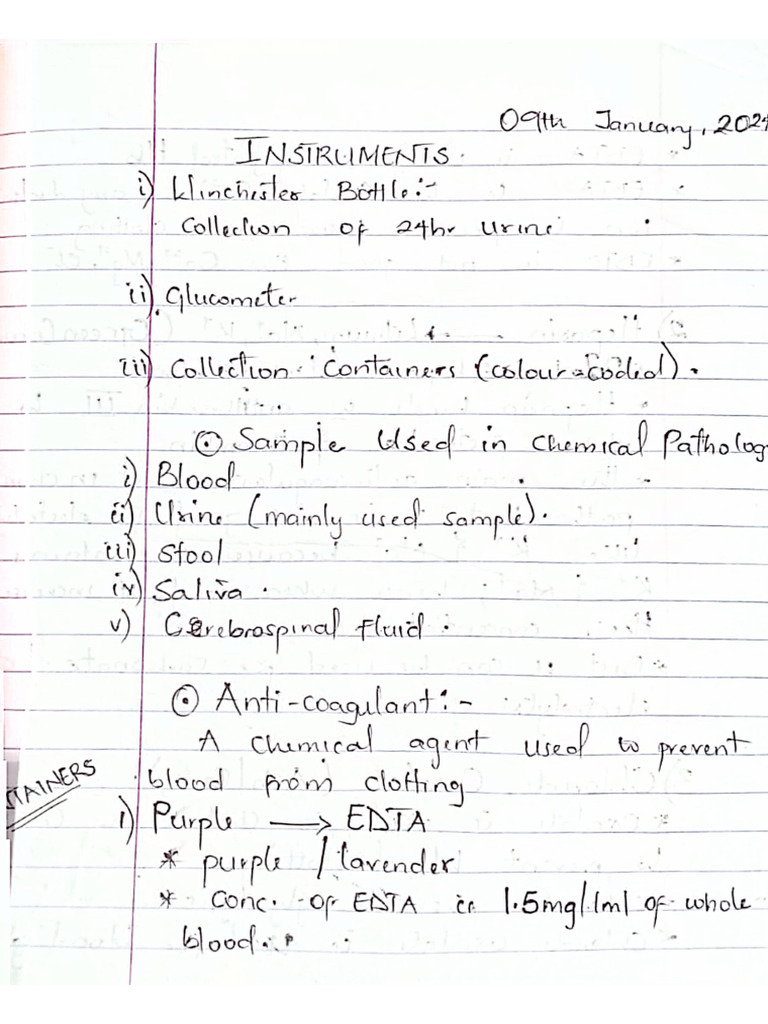 09th January, 202
INSTRUMENTS.
i) Winchester Bottle:-
Collection of 24hr urine
ii) Glucometer
iii) Collection Containers (colour-coded).
⊙ Sample Used in Chemical Patholog
i) Blood
ii) Urine (mainly used sample).
iii) Stool
iv) Saliva.
v) Cerebrospinal Fluid.
⊙ Anti-coagulant:-
A chemical agent used to prevent
blood from clotting
TAINERS
i) Purple → EDTA
* purple / lavender
* Conc. of EDTA is 1.5mg/1ml of whole
blood.